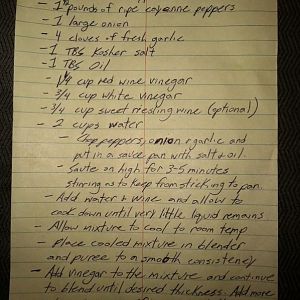 - 1 1/2 pounds of ripe cayenne peppers
- 1 large onion
- 4 cloves of fresh garlic
- 1 TBS Kosher salt
- 1 TBS Oil
- 1/2 cup red wine vinegar
- 3/4 cup white vinegar
- 3/4 cup sweet riesling wine (optional)
- 2 cups water
- Chop peppers, onion & garlic and
put in a sauce pan with salt & oil.
- Saute on high for 3-5 minutes
stirring as to keep from sticking to pan.
- Add water & wine and allow to
cook down until very little liquid remains
- Allow mixture to cool to room temp
- Place cooled mixture in blender
and puree to a smooth consistency
- Add vinegar to the mixture and continue
to blend until desired thickness. Add more